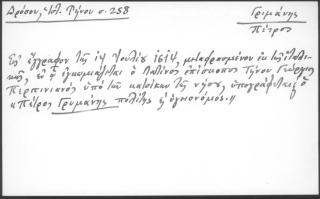 Δρόσου, Ἱστ. Τήνου σ. 258
Γριμάνης
Πέτρος
Εἰς ἔγγραφον τῆς 14 Ἰουλίου 1614, μεταφρασμένον ἐκ τῆς Ἰταλι-
κῆς, ἐν ᾧ ἐγκωμιάζεται ὁ Λατῖνος ἐπίσκοπος Τήνου Γεώργιος
Περπινιανός ὑπό τῶν κατοίκων τῆς νήσου, ὑπογράφεται ὁ
"Πέτρος Γρυμάνης πολίτης κ ἀγιονόμος."